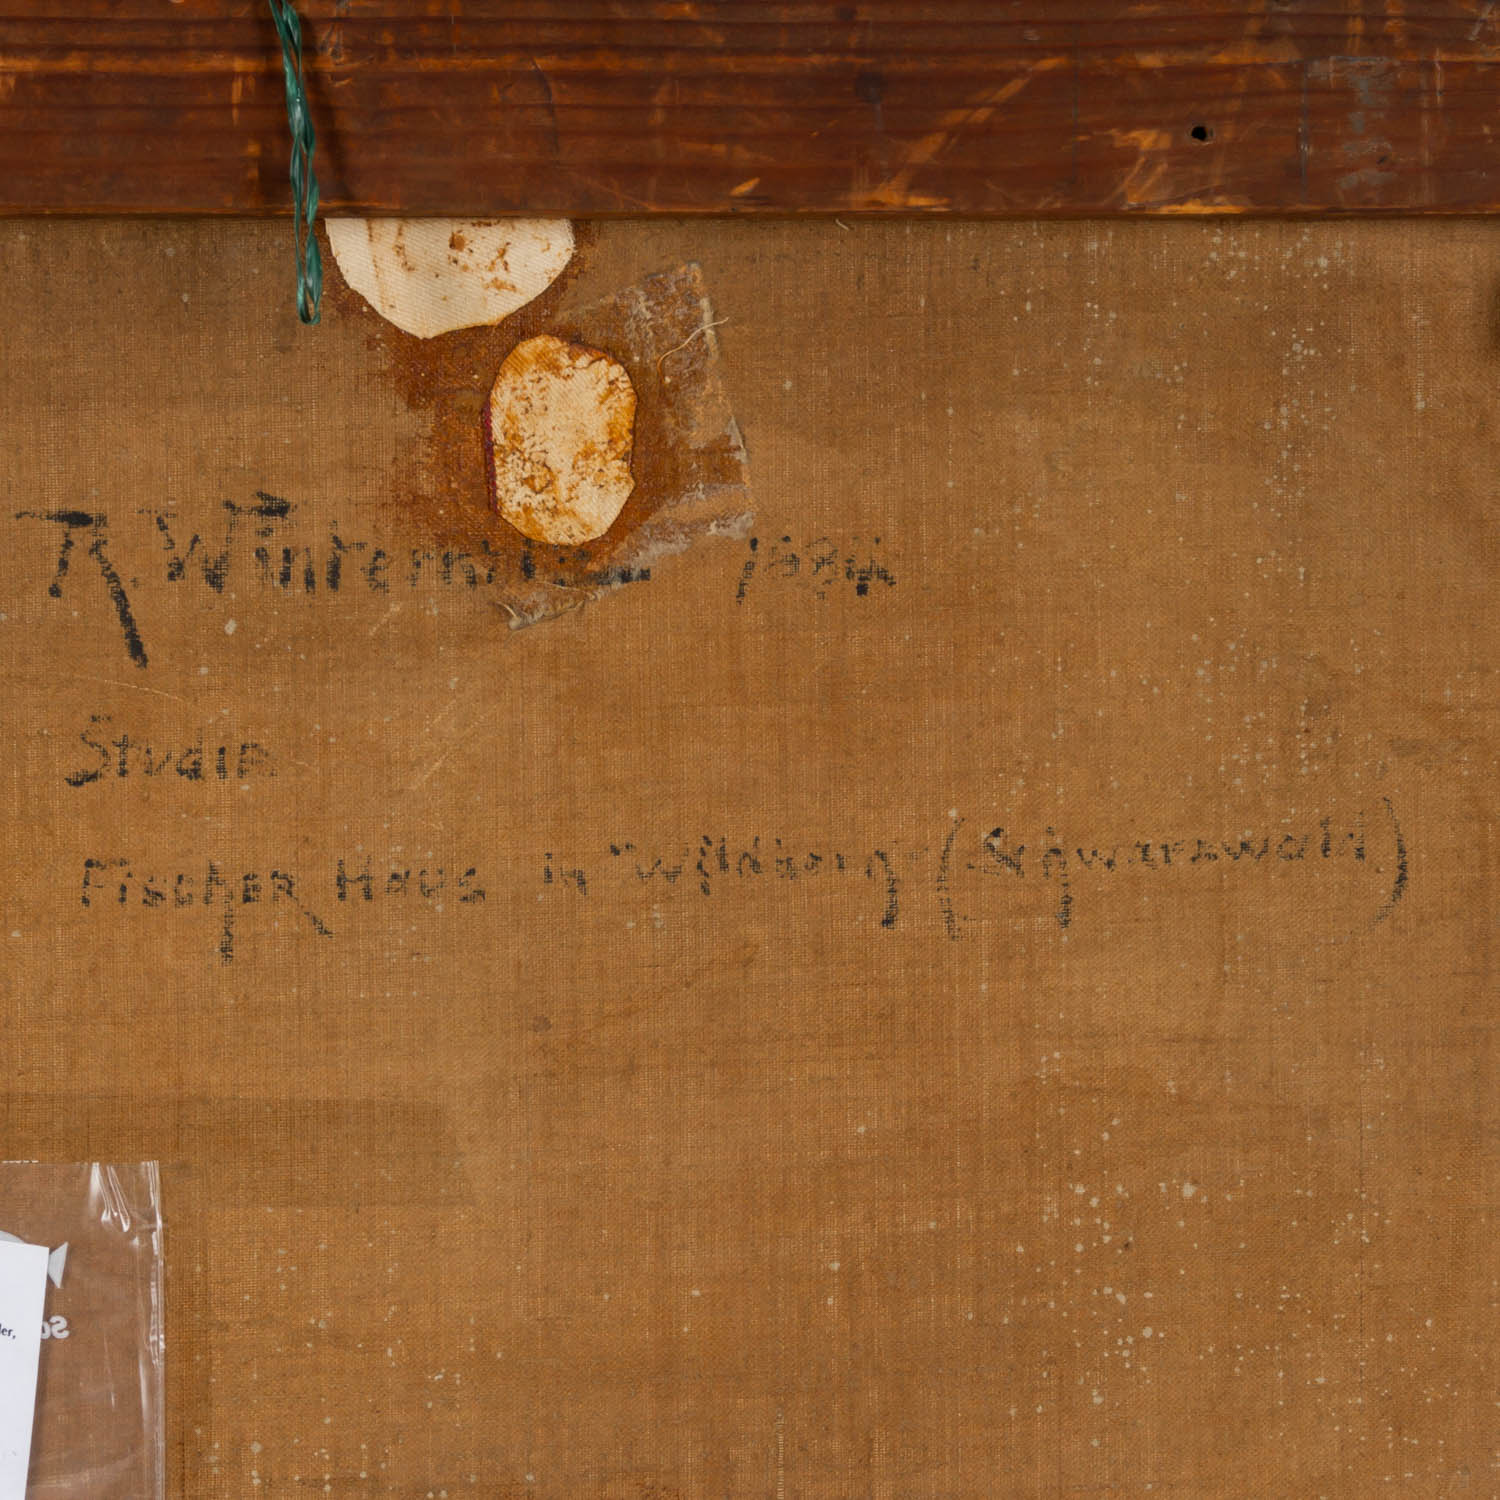 R. Winterni
Studie
Fischer Haus in Wildberg (Schwarzwald)
ler,